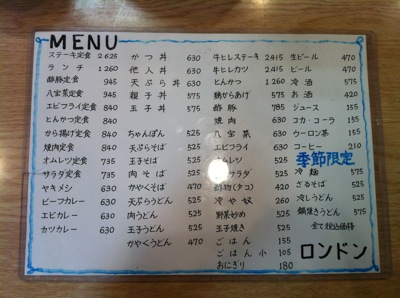 MENU
ステーキ定食 2625
ランチ 1260
酢豚定食 945
八宝菜定食 945
エビフライ定食 840
とんかつ定食 840
から揚げ定食 840
焼肉定食 840
オムレツ定食 735
サラダ定食 735
ヤキメシ 630
ビーフカレー 630
エビカレー 630
カツカレー 630
かつ丼 630
他人丼 630
天ぷら丼 630
親子丼 575
玉子丼 575
ちゃんぽん 525
天ぷらそば 525
玉子そば 525
肉そば 525
かやくそば 470
天ぷらうどん 525
肉うどん 525
玉子うどん 525
かやくうどん 470
牛ヒレステーキ 2415
牛ヒレカツ 2415
とんかつ 1260
鶏からあげ 575
酢豚 785
焼肉 630
八宝菜 630
エビフライ 630
オムレツ 525
サラダ 525
酢物(タコ) 420
冷や奴 260
野菜炒め 525
玉子焼き 525
ごはん 155
ごはん小 105
おにぎり 180
生ビール 470
ビール 470
冷酒 575
お酒 420
ジュース 155
コカ・コーラ 155
ウーロン茶 155
コーヒー 210
季節限定
冷麺 575
ざるそば 525
冷しうどん 525
鍋焼きうどん 575
全て税込価格
ロンドン